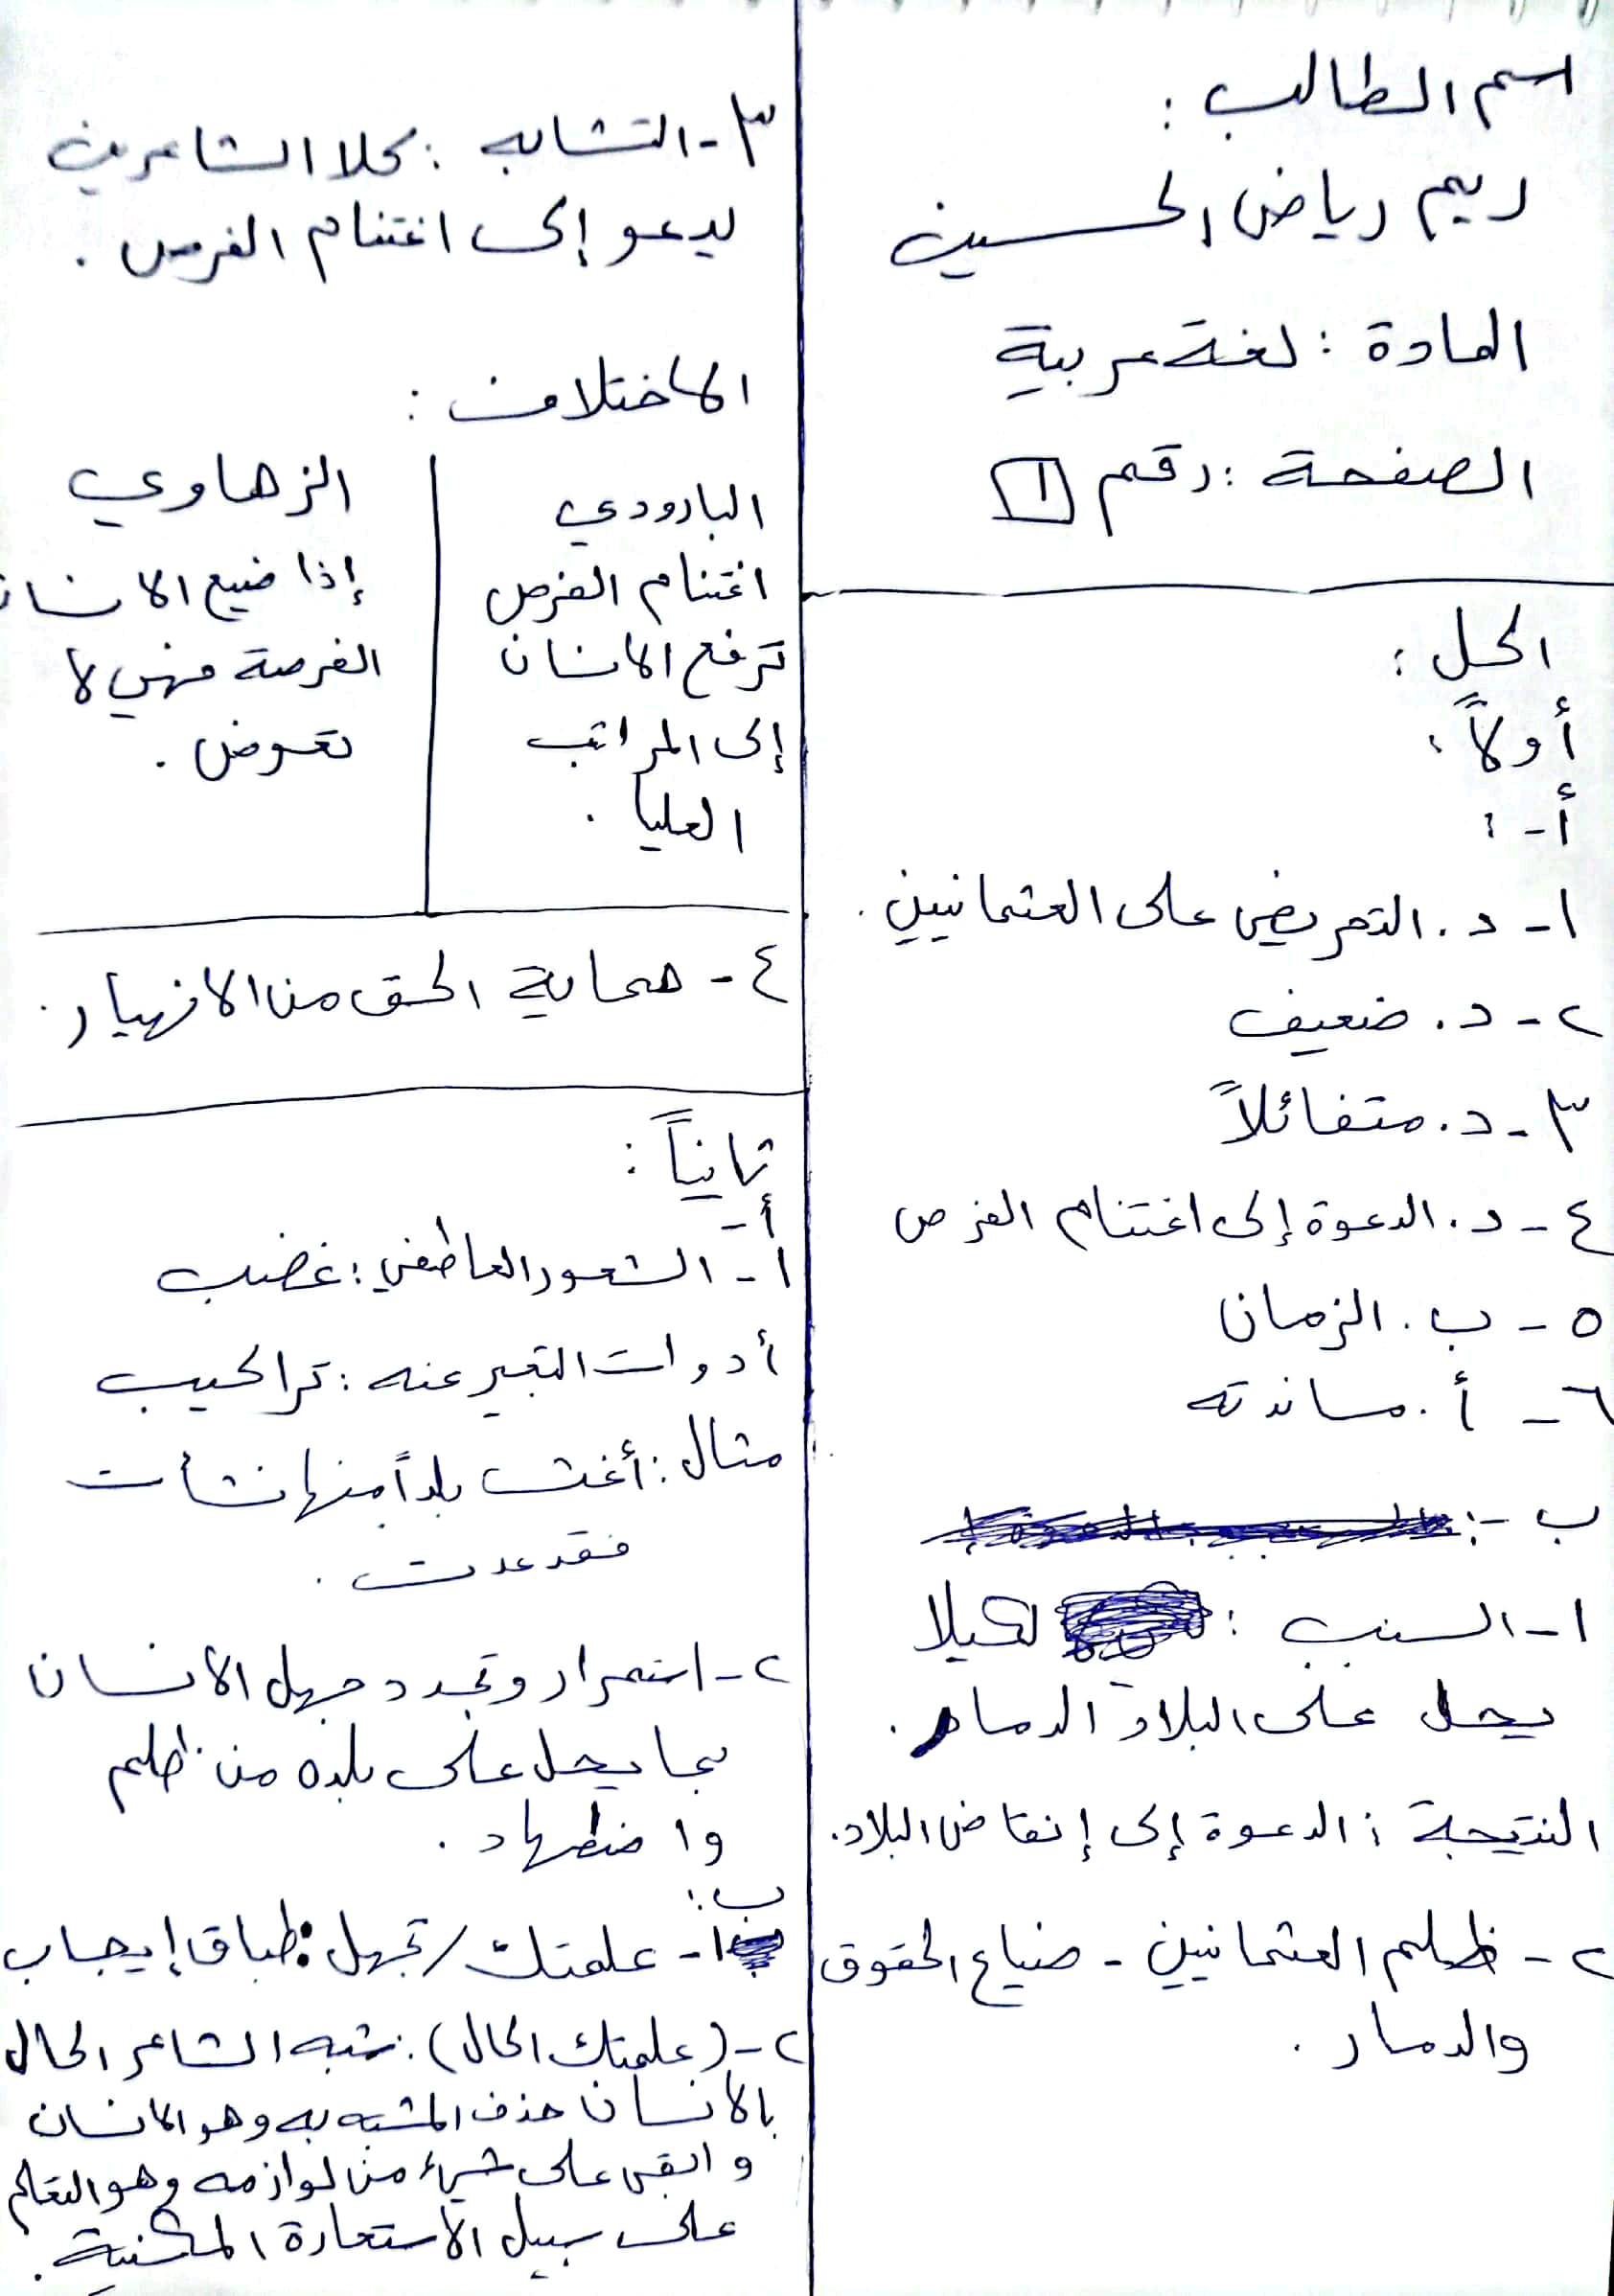 اسم الطالب :
ريم رياض الحسين
المادة : لغة عربية
الصفحة : رقم ١
الحل :
أولاً :
أ - :
١ - د . التحريض على العثمانيين .
٢ - د . ضعيف
٣ - د . متفائلاً
٤ - د . الدعوة إلى اغتنام الفرص
٥ - ب . الزمان
٦ - أ . مساندته
ب - :
١ - السبب : لكيلا
يحل على البلاد الدمار .
النتيجة : الدعوة إلى إنقاض البلاد .
٢ - ظلم العثمانيين - ضياع الحقوق
والدمار .
٣ - التشابه : كلا الشاعرين
يدعو إلى اغتنام الفرص .
الاختلاف :
البارودي
اغتنام الفرص
ترفع الانسان
إلى المراتب
العليا .
الزهاوي
إذا ضيع الانسان
الفرصة فهي لا
تعوض .
٤ - حماية الحق من الانهيار .
ثانياً :
أ -
١ - الشعور العاطفي : غضب
أدوات التعبير عنه : تراكيب
مثال : أغث بلداً منها نشأت
فقد عدت .
٢ - استمرار وتجدد جهل الانسان
بما يحل على بلده من ظلم
واضطهاد .
ب :
١ - علمتك / تجهل : طباق إيجاب
٢ - (علمتك الحال) : شبه الشاعر الحال
بالانسان حذف المشبه به وهو الانسان
وابقى على شيء من لوازمه وهو التعلم
على سبيل الاستعارة المكنية .